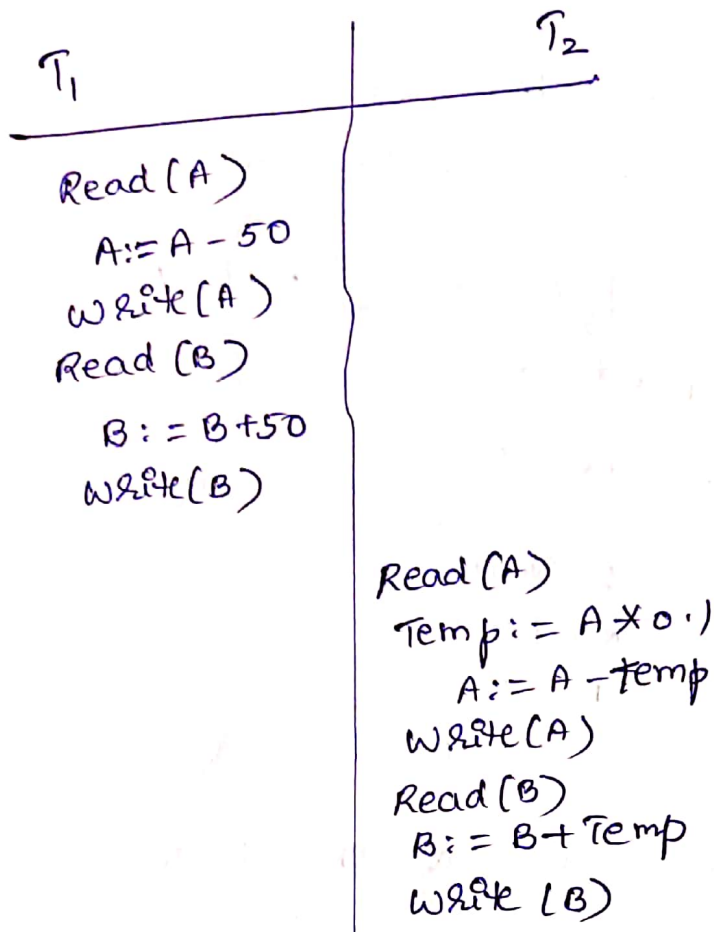 T1
T2
Read (A)
A:= A - 50
Write (A)
Read (B)
B:= B+50
Write (B)
Read (A)
Temp:= A * 0.1
A:= A - temp
Write (A)
Read (B)
B:= B + Temp
Write (B)